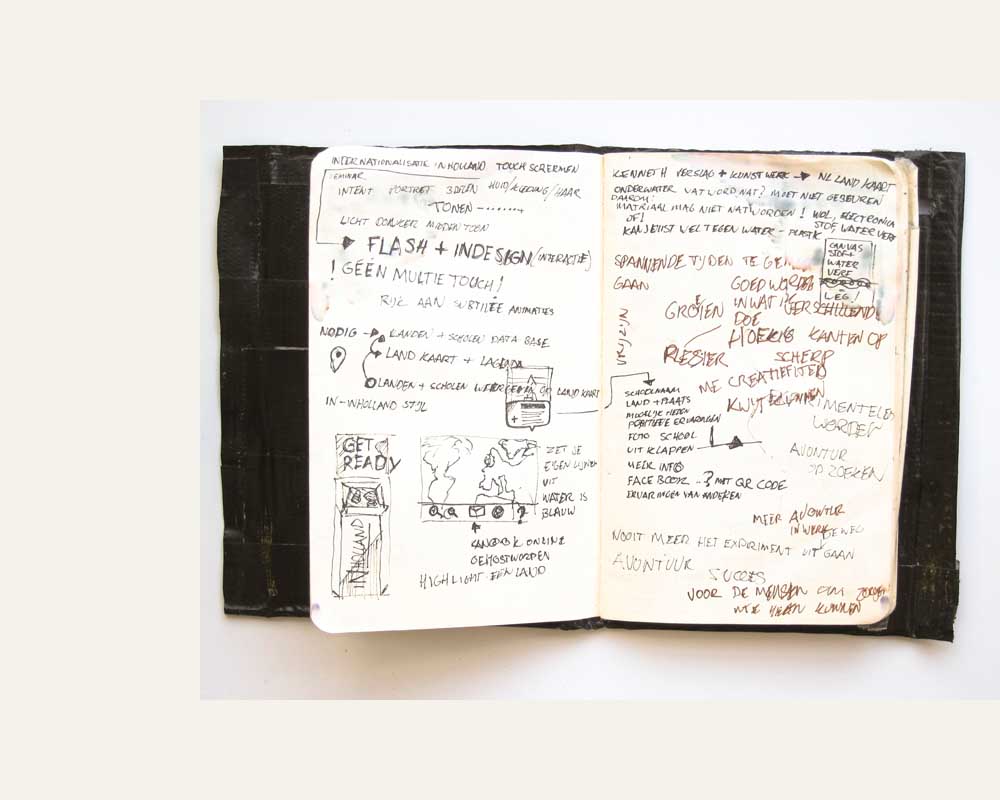 INTERNATIONALISATIE INHOLLAND TOUCH SCREEMEN
SEMINAR
INTENT PORTRET 3DELEN HUID/KLEDING/HAAR
TONEN
LICHT DONKER MIDDENTOON
FLASH + INDESIGN (INTERACTIEF)
! GEÉN MULTIE TOUCH!
RIJK AAN SUBTIELE ANIMATIES
NODIG → LANDEN + SCHOLEN DATA BASE
LAND KAART + LAGENDA
LANDEN + SCHOLEN WEERGEEVEN OP LAND KAART
IN-WHOLLAND STIJL
GET READY
INHOLLAND
ZET JE
EIGEN
UIT
WATER IS
BLAUW
?
OOK ONLINE
GEHOST WORDEN
HIGHLIGHT EEN LAND
KENNETH VERSLAG + KUNSTWERK → NL LAND KAART
ONDERWATER WAT WORD NAT? MOET NIET GEBEUREN
DAAROM:
MATRIAAL MAG NIET NAT WORDEN! WOL, ELECTRONICA
OF! STOF, WATERVERF
KAN JUIST WEL TEGEN WATER - PLASTIK
CANVAS
STOF +
WATER
VERF
LEG!
SPANNENDE TIJDEN TE
GAAN
GOED WORDEN
IN WAT IK
DOE
GROEIEN
VERSCHILLENDE
KANTEN OP
VRIJ ZIJN
PLESIER
SCHERP
ME CREATIEFITEIT
KWIJT KUNNEN
WORDEN
SCHOOLNAAM
LAND + PLAATS
POSITIEFE ERVARINGEN
FOTO SCHOOL
UIT KLAPPEN
MEER INFO
FACE BOOK ..? MET QR CODE
ERVARINGEN VAN ANDEREN
AVONTUUR
OP ZOEKEN
MEER AVONTUUR
IN WERK
NOOIT MEER HET EXPERIMENT UIT GAAN
AVONTUUR
SUCCES
VOOR DE MENSEN OM ZORGEN
ME HEEN KUNNEN